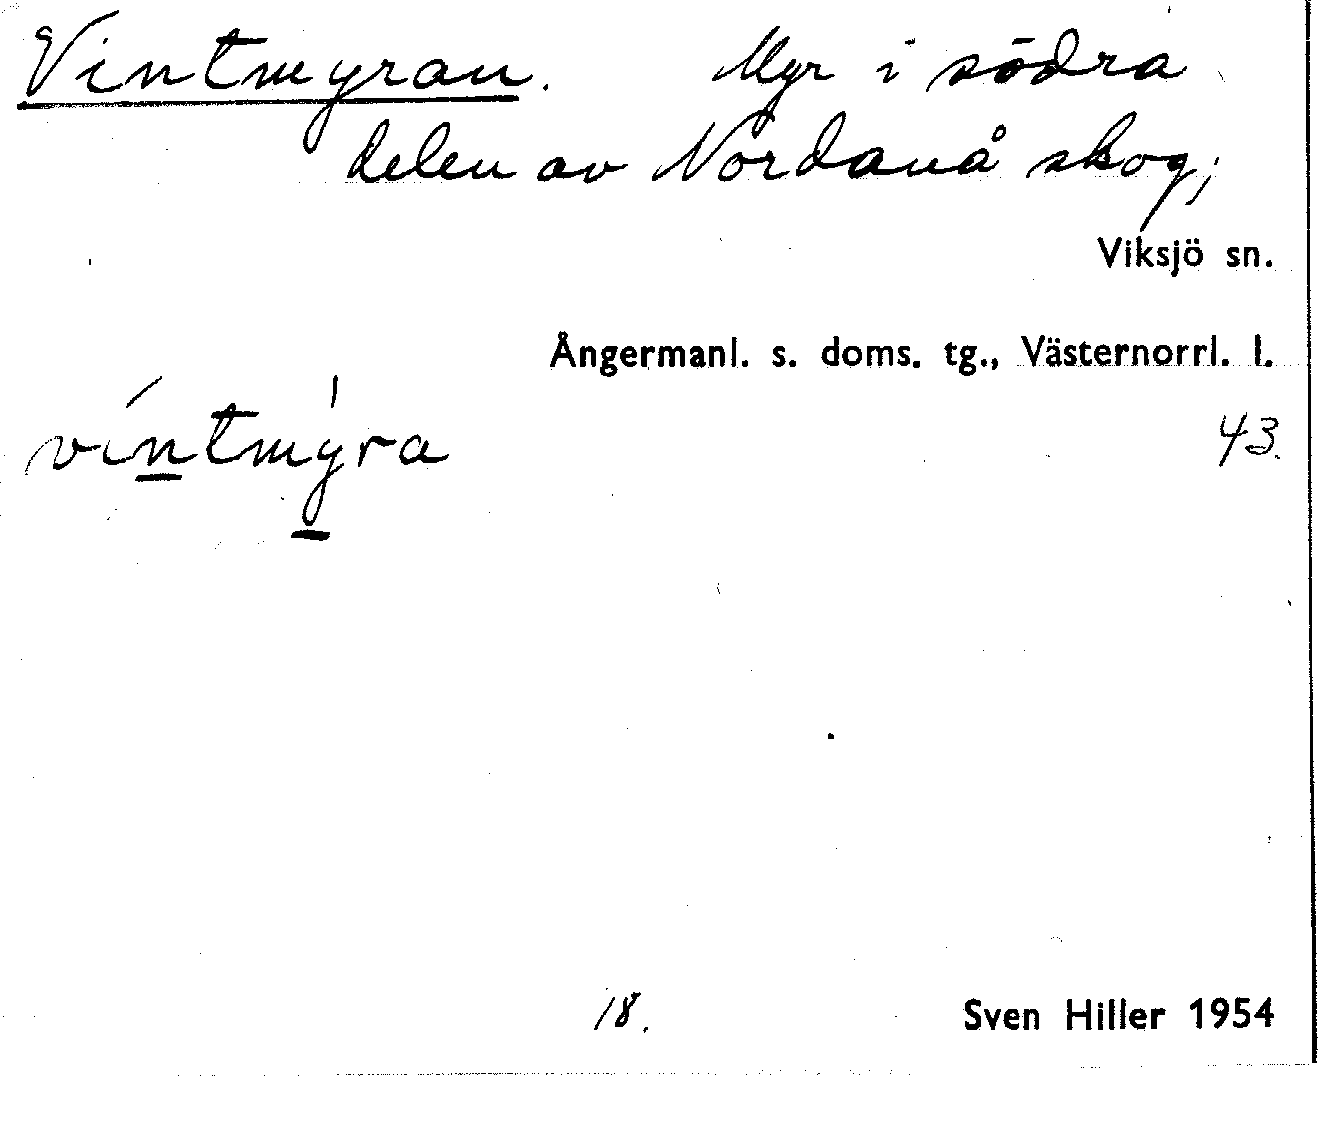 Vintmyran. Myr i södra
delen av Nordanå skog;
Viksjö sn.
Ångermanl. s. doms. tg., Västernorrl. l.
víntmy̍ra
43.
18. Sven Hiller 1954